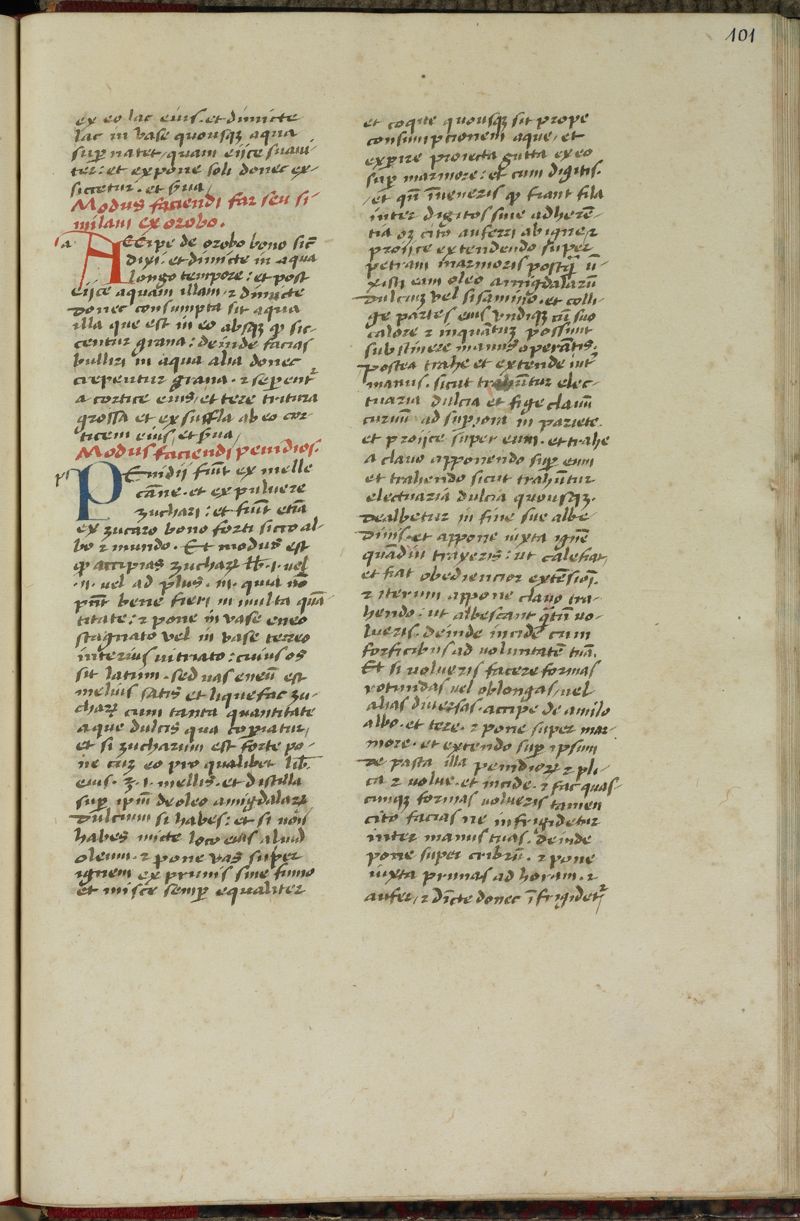 101
ex eo lac eius. et dimicte
lac in vase quousqꝫ aqua
suꝑnatet, quam eijce suaui-
ter: et expone soli donec ex-
siccetur. et ẜua,
Modus faciendi far seu si-
milam ex orobo.
a
ACcipe de orobo bono sic̄
dixi. et dimicte in aqua
longo tempore: et post
eijce aquam illam, ⁊ dimicte
donec consumpta sit aqua
illa que est in eo absqꝫ ꝙ sic-
centur grana: deinde facias
bulliri in aqua alia donec
crepentur grana. ⁊ seꝑent᷑
a cortice eius, et tere tritura
grossa et exsuffla ab eo cor-
ticem eius, et ẜua,
Modus faciendi penidios.
p
PEnidij fiūt ex melle
cāne. et ex puluere
zuchari: et fiūt etiā
ex zucaro bono forti sicco al-
bo ⁊ mundo. Et modus est
ꝙ accipias zuchaꝝ lb. i. vel
.ii. vel ad plus. iii. quia nō
pn̄t bene fieri in multa quā-
titate: ⁊ pone in vase eneo
stagnato vel in vase terreo
interius vitriato: cuius os
sit latum. sed uas eneū est
melius satis et liquefac zu-
chaꝝ cum tanta quantitate
aque dulcis qua coꝑiatur,
et si zucharum est forte po-
ne cuꝫ eo pro qualibet lib.
eius. ʒ. i. mellis. et distilla
suꝑ ip̄m de oleo amigdalaꝝ
dulcium si habes: et si non
habes micte loco eius aliud
oleum. ⁊ pone vas super
ignem ex prunis sine fumo
et misce semꝑ equaliter
et coque quousqꝫ sit prope
consumptionem aque, et
experire proiecta gutta ex eo
suꝑ marmore: et cum digitis.
, et qn̄ īueneris ꝙ fiant fila
inter digitos siue adherē-
tia oꝫ cito auferri ab igne, ⁊
proijce extendendo super
petram marmoris postꝗ̄ ū-
xisti eam oleo amigdalarū
dulciuꝫ vel sisamino. et colli-
ge partes eius vndiqꝫ cū suo
calore ⁊ inquantuꝫ possunt
substinere manus operantis.
postea trahe et extende int᷑
manus. sicut trahūtur elec-
tuaria dulcia et fige clauū
curuū ad suꝑiora in pariete.
et proijce super eum. et trahe
a clauo apponendo suꝑ eum
et trahendo sicut trahūtur
electuaria dulcia quousqꝫ.
dealbetur in fine sue albe-
dinis. et appone iuxta ignē
quādiu traxeris: ut calefiat,
et fiat obediencior extēsiōi.
⁊ iterum appone clauo tra-
hendo: ut albescant q̄tū uo-
lueris. deinde incide cum
forficibus ad voluntatē tuā.
Et si uolueris facere formas
rotundas vel oblongas, uel
alias diuersas. accipe de amilo
albo. et tere. ⁊ pone super mar-
more. et extendo suꝑ ipsum
de pasta illa penidioꝝ ⁊ pli-
ca ⁊ volue. et incide. ⁊ fac quas-
cunqꝫ formas uolueris tamen
cito facias ne infrigidetur
inter manus tuas. deinde
pone super cribrū. ⁊ pone
iuxta prunas ad horam. ⁊
aufer, ⁊ dīcte donec īfrigidet᷑